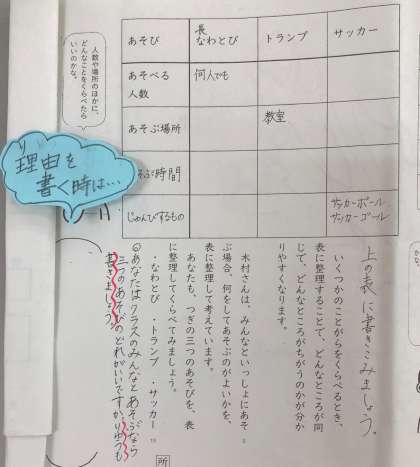 あそび
長
なわとび
トランプ
サッカー
あそべる
人数
何人でも
あそぶ場所
教室
そぶ時間
じゅんびするもの
サッカーボール
サッカーゴール
人数や場所のほかに、
どんなことをくらべたら
いいのかな。
理由を
書く時は…
上の表に書きこみましょう。
いくつかのことがらをくらべるとき、
表に整理することで、どんなところが同
じで、どんなところがちがうのかが分か
りやすくなります。
木村さんは、みんなといっしょにあそ
ぶ場合、何をしてあそぶのがよいかを、
表に整理して考えています。
あなたも、つぎの三つのあそびを、表
に整理してくらべてみましょう。
・なわとび ・トランプ ・サッカー
あなたはクラスのみんなとあそぶなら
三つのあそびのどれがいいですか。りゆうも
書きましょう。
所